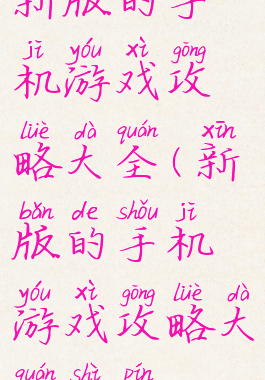 新版的手
jī yóu xì gōng
机游戏攻
lüè dà quán xīn
略大全(新
bǎn de shǒu jī
版的手机
yóu xì gōng lüè dà
游戏攻略大
quán shì pín